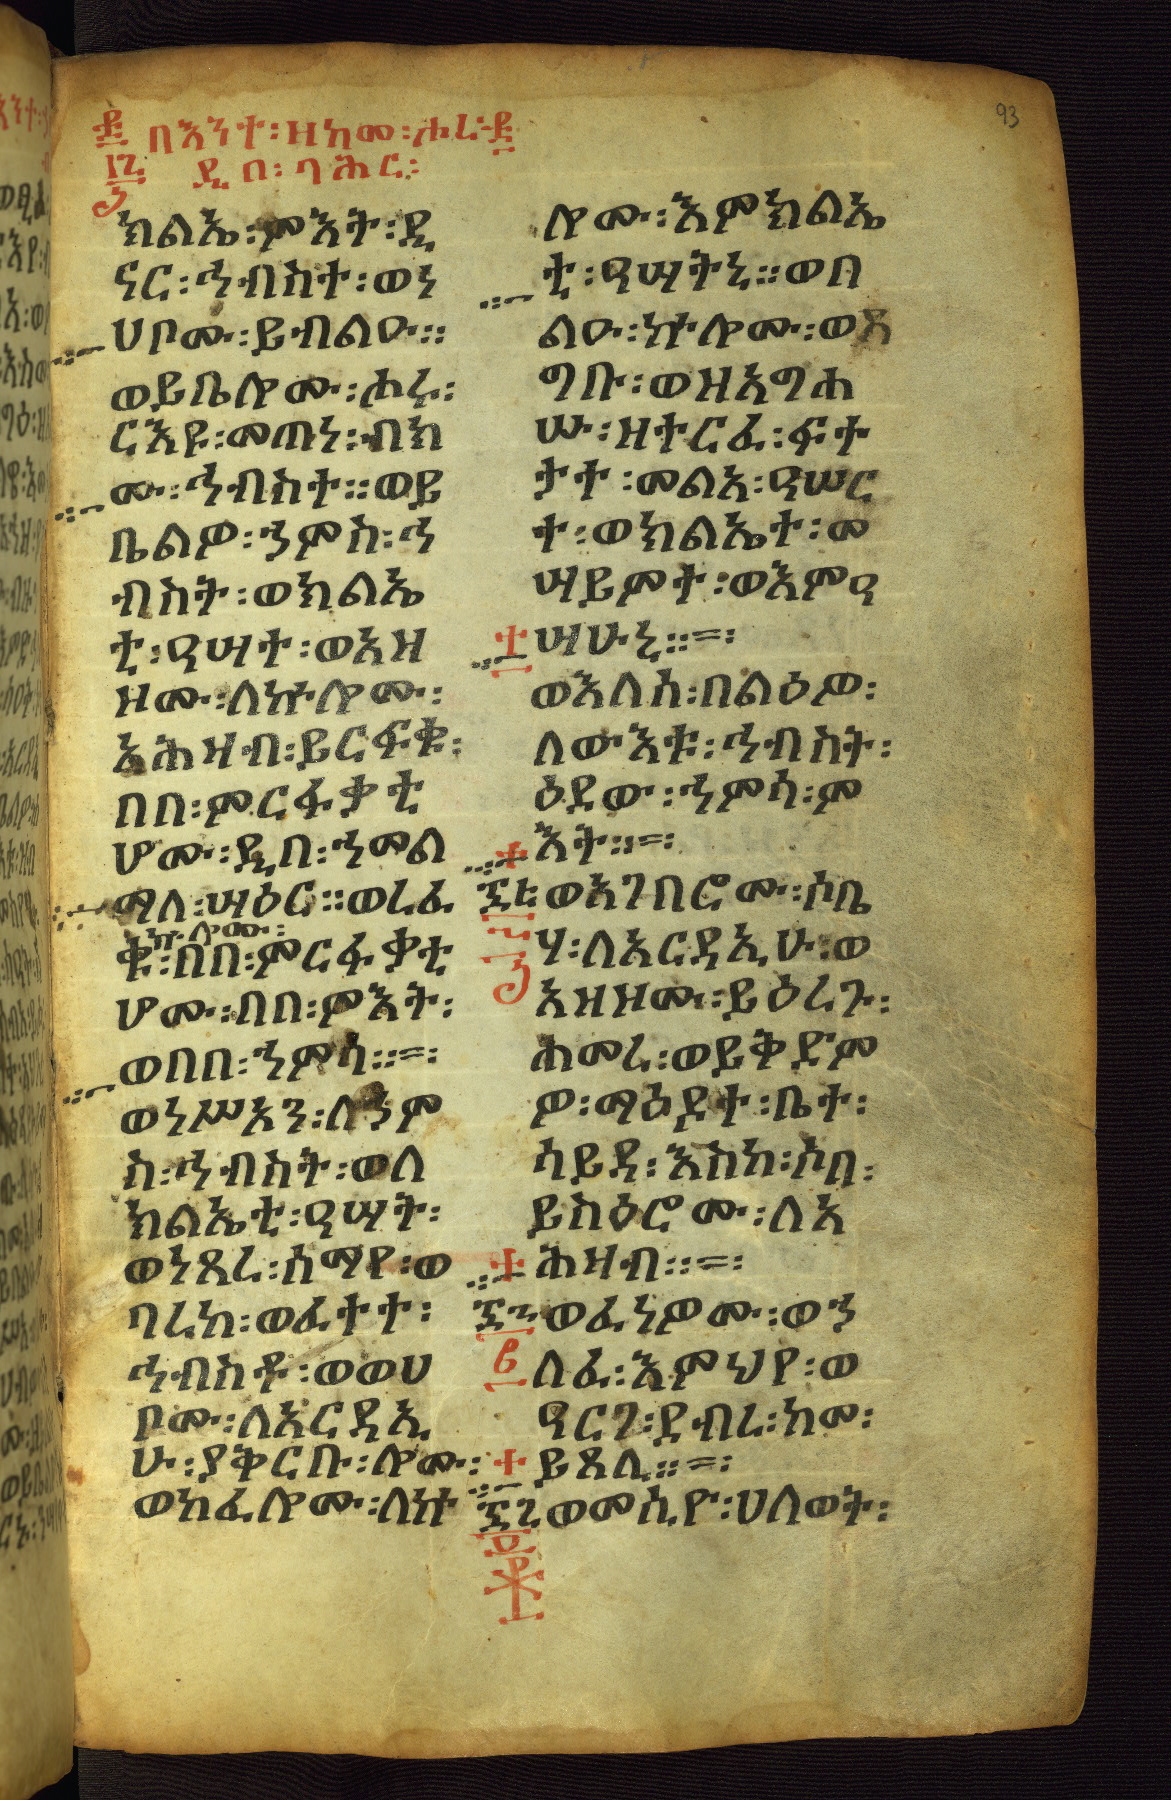 93
በእንተ፡ዘከመ፡ሖረ፡
ዲበ፡ባሕር፡
ክልኤ፡ምእት፡ዲ
ናር፡ኅብስተ፡ወነ
ሀቦሙ፡ይብልዑ።
ወይቤሎሙ፡ሖሩ፡
ርእዩ፡መጠነ፡ብክ
ሙ፡ኅብስተ።ወይ
ቤልዎ፡ኀምስ፡ኅ
ብስት፡ወክልኤ
ቲ፡ዓሣት፡ወአዘ
ዞሙ፡ለኵሎሙ፡
አሕዛብ፡ይርፍቁ፡
በበ፡ምርፋቃቲ
ሆሙ፡ዲበ፡ኀመል
ማለ፡ሣዕር።ወረፈ
ኵሎሙ፡
ቁ፡በበ፡ምርፋቃቲ
ሆሙ፡በበ፡ምእት፡
ወበበ፡ኀምሳ።=፡
ወነሥአን፡ለኀም
ስ፡ኅብስት፡ወለ
ክልኤቲ፡ዓሣት፡
ወነጸረ፡ሰማየ፡ወ
ባረከ፡ወፈተተ፡
ኅብስቶ፡ወወሀ
ቦሙ፡ለአርዳኢ
ሁ፡ያቅርቡ፡ሎሙ፡
ወከፈሎሙ፡ለኵ
ሎሙ፡እምክልኤ
ቲ፡ዓሣትኒ።ወበ
ልዑ፡ኵሎሙ፡ወጸ
ግቡ፡ወዝአግሐ
ሡ፡ዘተርፈ፡ፍተ
ታተ፡መልአ፡ዓሠር
ተ፡ወክልኤተ፡መ
ሣይምተ፡ወእምዓ
ሣሁኒ።=፡
ወእለሰ፡በልዕዎ፡
ለውእቱ፡ኅብስት፡
ዕደው፡ኀምሳ፡ም
እት።=፡
ወአገበሮሙ፡ሶቤ
ሃ፡ለአርዳኢሁ፡ወ
አዘዞሙ፡ይዕረጉ፡
ሐመረ፡ወይቅድም
ዎ፡ማዕዶተ፡ቤተ፡
ሳይዳ፡እስከ፡ሶበ፡
ይስዕሮሙ፡ለአ
ሕዛብ።=፡
ወፈነዎሙ፡ወኀ
ለፈ፡እምህየ፡ወ
ዓርገ፡ደብረ፡ከመ፡
ይጸሊ።=፡
ወመሲዮ፡ሀለወት፡